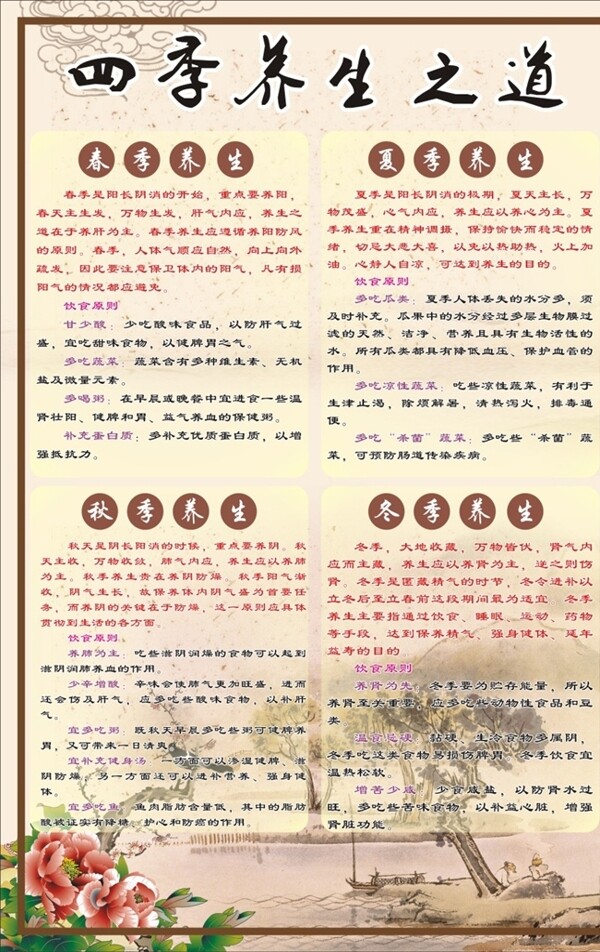 四季养生之道
春季养生
春季是阳长阴消的开始，重点要养阳，
春天主生发，万物生发，肝气内应，养生之
道在于养肝为主。春季养生应遵循养阳防风
的原则。春季，人体气顺应自然，向上向外
疏发，因此要注意保卫体内的阳气，凡有损
阳气的情况都应避免。
饮食原则
甘少酸：少吃酸味食品，以防肝气过
盛，宜吃甜味食物，以健脾胃之气。
多吃蔬菜：蔬菜含有多种维生素、无机
盐及微量元素。
多喝粥：在早晨或晚餐中宜进食一些温
肾壮阳、健脾和胃、益气养血的保健粥。
补充蛋白质：多补充优质蛋白质，以增
强抵抗力。
夏季养生
夏季是阳长阴消的极期，夏天主长，万
物茂盛，心气内应，养生应以养心为主。夏
季养生重在精神调摄，保持愉快而稳定的情
绪，切忌大悲大喜，以免以热助热，火上加
油。心静人自凉，可达到养生的目的。
饮食原则
多吃瓜类：夏季人体丢失的水分多，须
及时补充。瓜果中的水分经过多层生物膜过
滤的天然、洁净、营养且具有生物活性的
水。所有瓜类都具有降低血压、保护血管的
作用。
多吃凉性蔬菜：吃些凉性蔬菜，有利于
生津止渴，除烦解暑，清热泻火，排毒通
便。
多吃“杀菌”蔬菜：多吃些“杀菌”蔬
菜，可预防肠道传染疾病。
秋季养生
秋天是阴长阳消的时候，重点要养阴。秋
天主收，万物收敛，肺气内应，养生应以养肺
为主。秋季养生贵在养阴防燥 秋季阳气渐
收，阴气生长，故保养体内阴气盛为首要任
务，而养阴的关键在于防燥，这一原则应具体
贯彻到生活的各方面。
饮食原则
养肺为主：吃些滋阴润燥的食物可以起到
滋阴润肺养血的作用。
少辛增酸：辛味会使肺气更加旺盛，进而
还会伤及肝气，应多吃些酸味食物，以补肝
气。
宜多吃粥：既秋天早晨多吃些粥可健脾养
胃，又可带来一日清爽
宜补充健身汤 一方面可以渗湿健脾、滋
阴防燥 另一方面还可以进补营养、强身健
体。
宜多吃鱼 鱼肉脂肪含量低，其中的脂肪
酸被证实有降糖 护心和防癌的作用。
冬季养生
冬季，大地收藏，万物皆伏，肾气内
应而主藏，养生应以养肾为主，逆之则伤
肾。冬季是匿藏精气的时节，冬令进补以
立冬后至立春前这段期间最为适宜 冬季
养生主要指通过饮食、睡眠 运动、药物
等手段，达到保养精气、强身健体、延年
益寿的目的
饮食原则
养肾为先 冬季要为贮存能量，所以
养肾至关重要 应多吃些动物性食品和豆
类
温食忌硬 黏硬 生冷食物多属阴，
冬季吃这类食物易损伤脾胃 冬季饮食宜
温热松软。
增苦少咸 少食咸盐，以防肾水过
旺，多吃些苦味食物，以补益心脏，增强
肾脏功能。